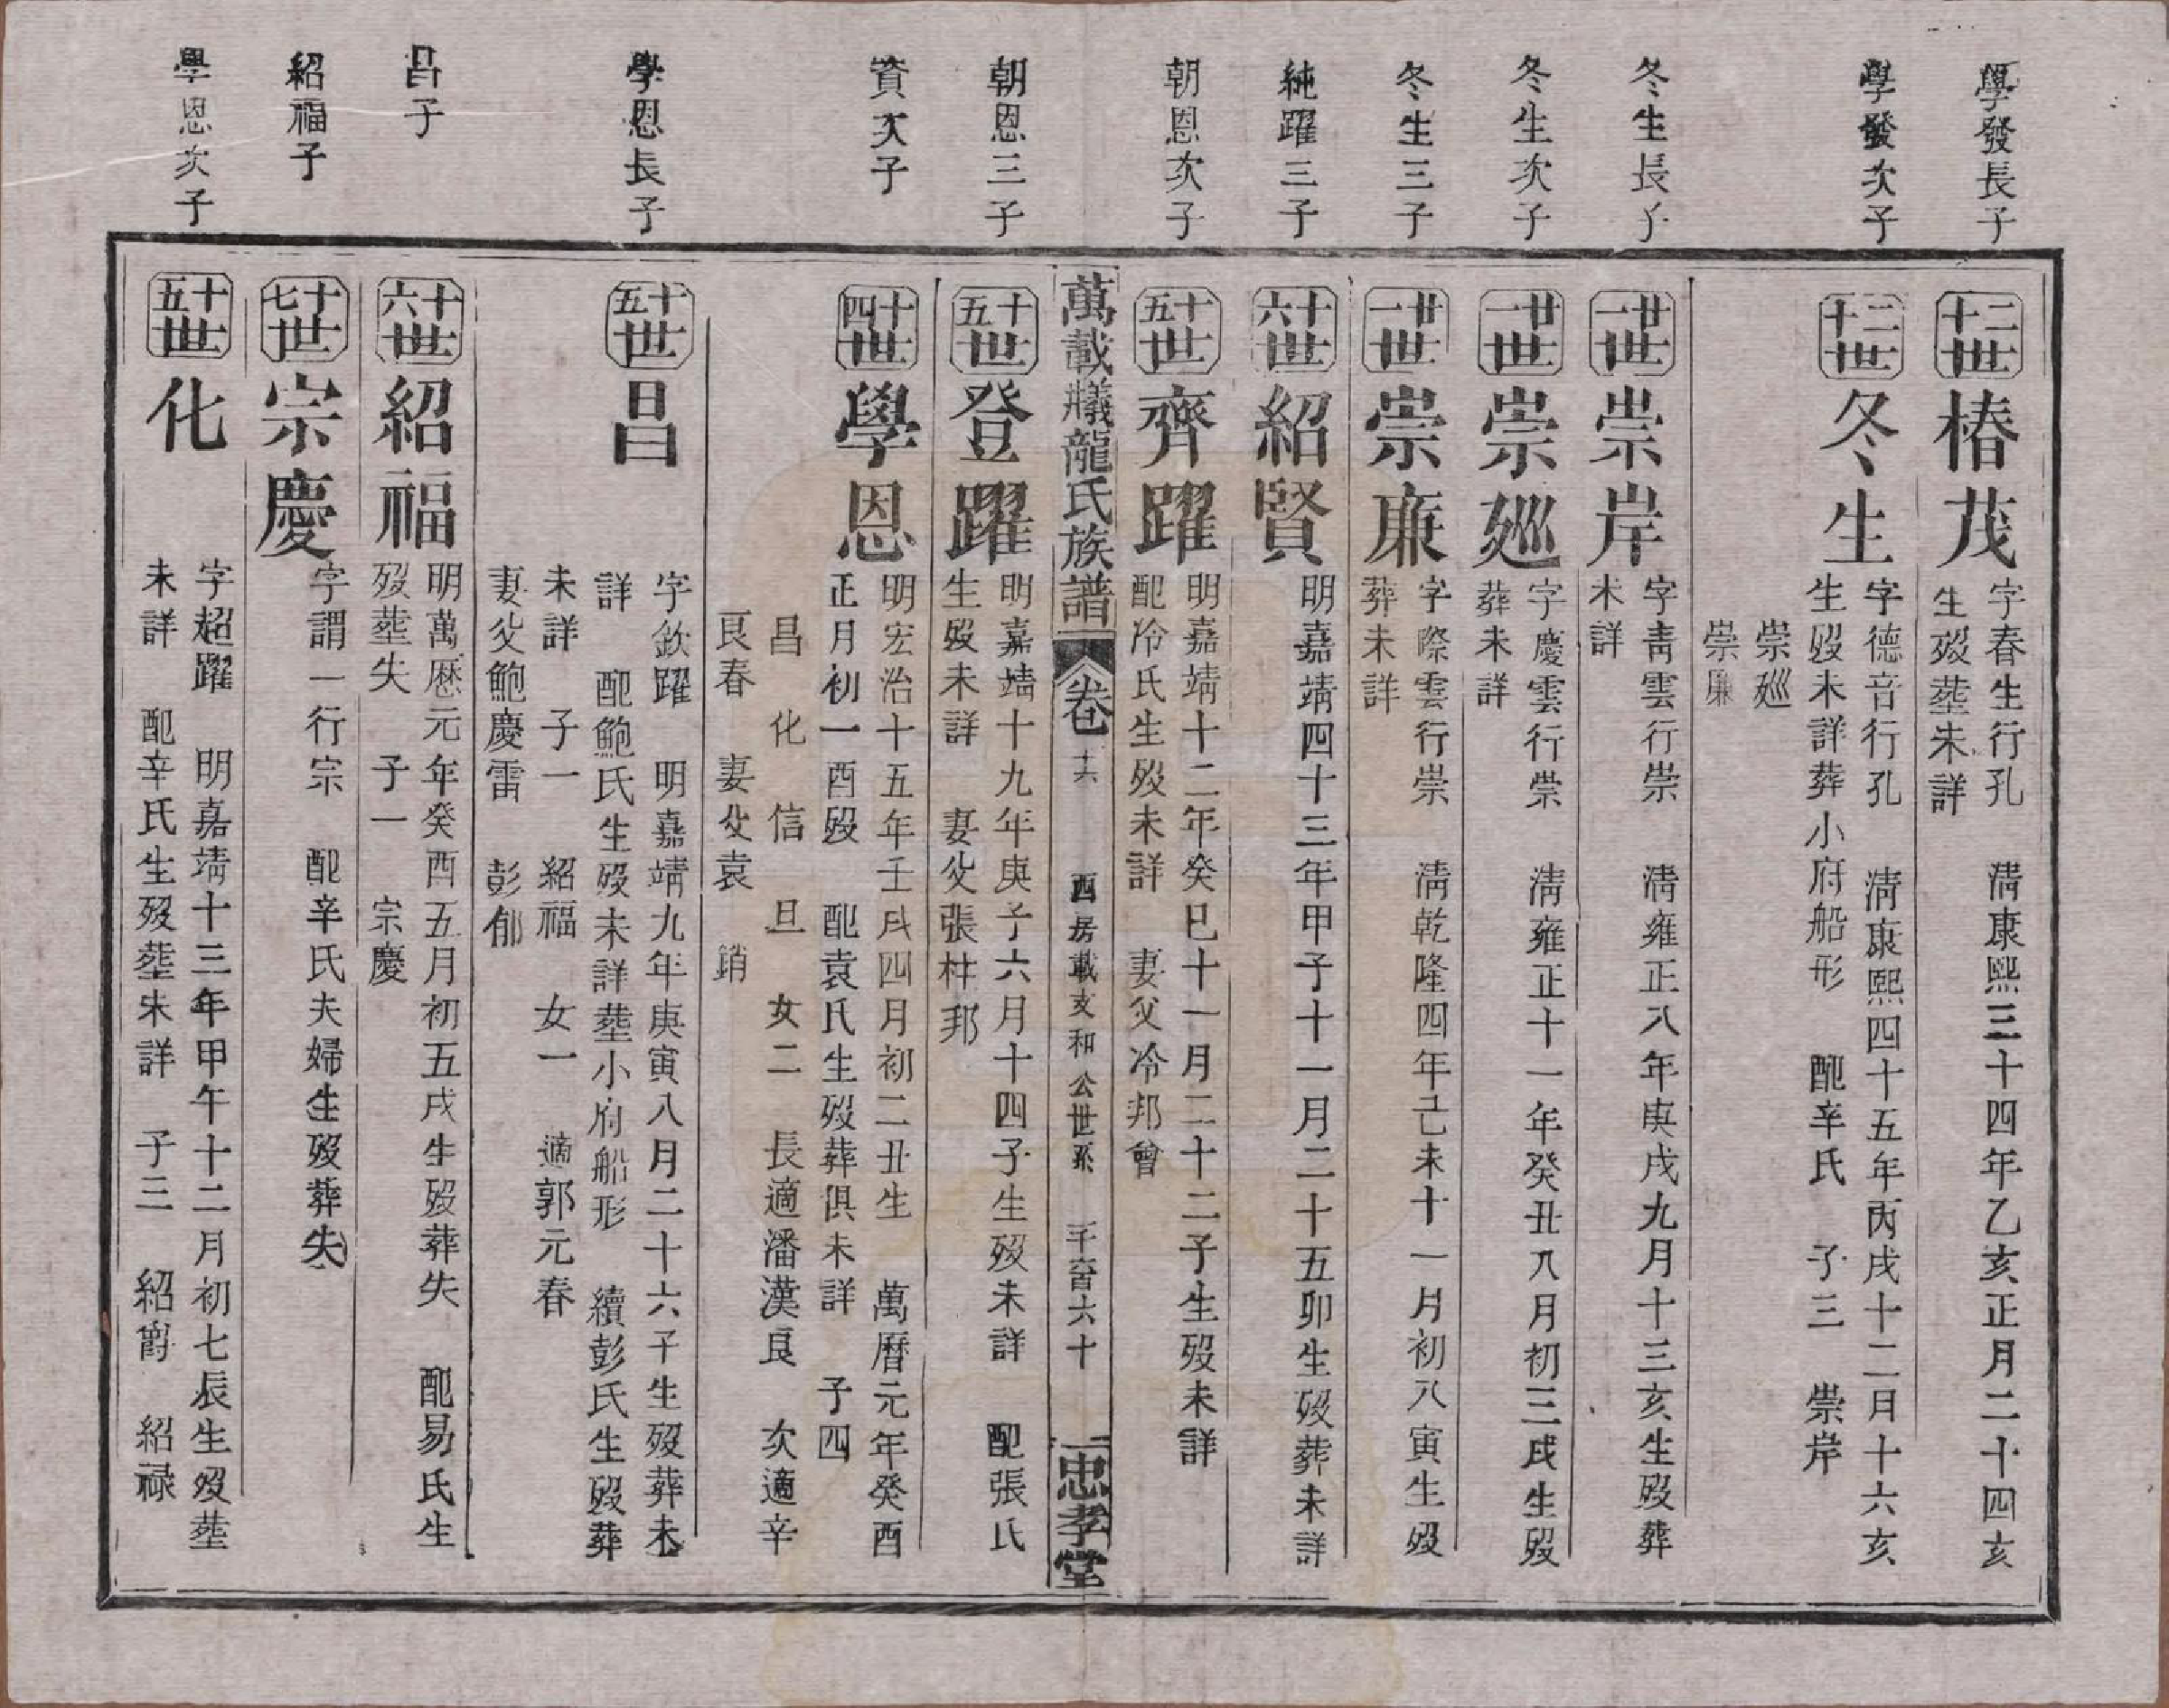 學發長子
二十世
椿茂
字春生行孔 清康熙三十四年乙亥正月二十四亥
生歿塟未詳
學發次子
二十世
冬生
字德音行孔 清康熙四十五年丙戌十二月十六亥
生歿未詳葬小府船形 配辛氏 子三 崇岸
崇𢌞
崇廉
冬生長子
廿一世
崇岸
字青雲行崇 清雍正八年庚戌九月十三亥生歿葬
未詳
冬生次子
廿一世
崇𢌞
字慶雲行崇 清雍正十一年癸丑八月初三戌生歿
葬未詳
冬生三子
廿一世
崇廉
字際雲行崇 清乾隆四年己未十一月初八寅生歿
葬未詳
純躍三子
十六世
紹賢
明嘉靖四十三年甲子十一月二十五卯生歿葬未詳
朝恩次子
十五世
齊躍
明嘉靖十二年癸巳十一月二十二子生歿未詳
配冷氏生歿未詳 妻父冷邦曾
萬載㸁龍氏族譜 卷十六 西房載支和公世系 千六百六十 忠孝堂
朝恩三子
十五世
登躍
明嘉靖十九年庚子六月十四子生歿未詳 配張氏
生歿未詳 妻父張柱邦
資次子
十四世
學恩
明宏治十五年壬戌四月初二丑生 萬曆元年癸酉
正月初一酉歿 配袁氏生歿葬俱未詳 子四
昌 化 信 旦 女二 長適潘漢良 次適辛
艮春 妻父袁 銷
學恩長子
十五世
昌
字欽躍 明嘉靖九年庚寅八月二十六子生歿葬未
詳 配鮑氏生歿未詳塟小府船形 續彭氏生歿葬
未詳 子一 紹福 女一 適郭元春
妻父鮑慶雷 彭郁
昌子
十六世
紹福
明萬歷元年癸酉五月初五戌生歿葬失 配易氏生
歿塟失 子一 宗慶
紹福子
十七世
宗慶
字謂一行宗 配辛氏夫婦生歿葬失
學恩次子
十五世
化
字超躍 明嘉靖十三年甲午十二月初七辰生歿塟
未詳 配辛氏生歿塟未詳 子三 紹爵 紹祿